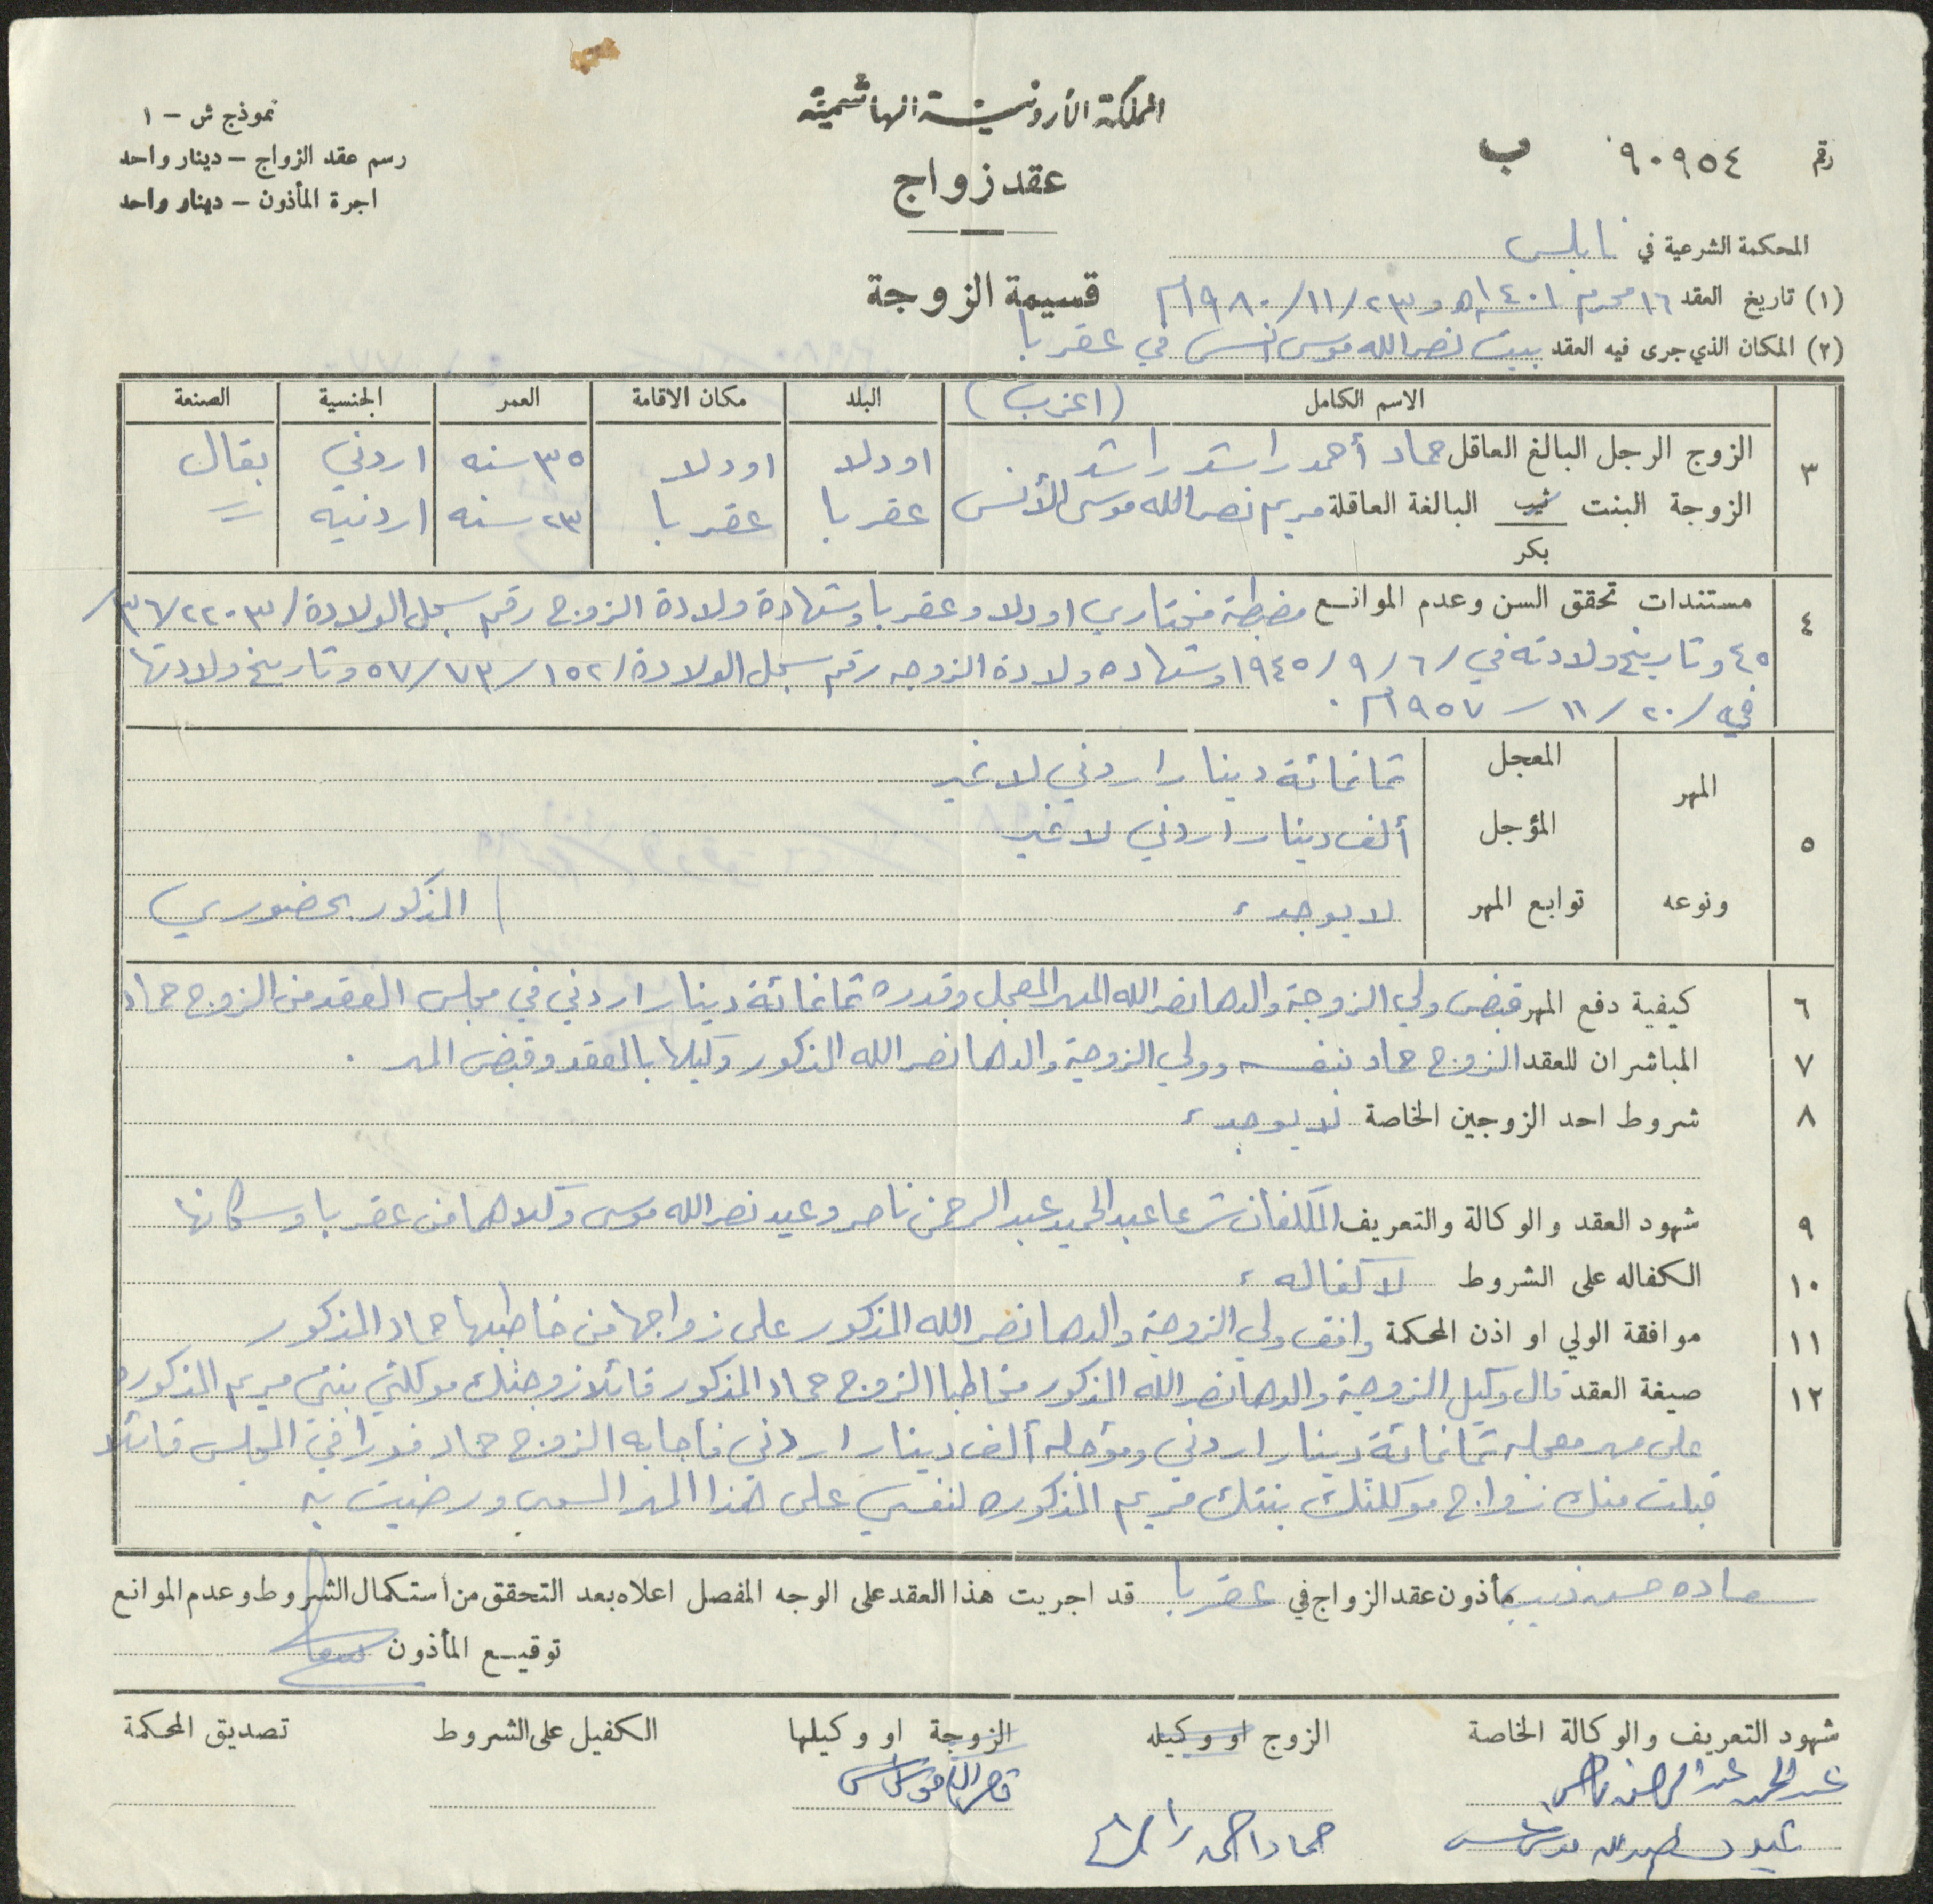 المملكة الأردنية الهاشمية
نموذج ش - ١
رسم عقد الزواج - دينار واحد
اجرة المأذون - دينار واحد
عقد زواج
رقم ٩٠٩٥٤ ب
المحكمة الشرعية في نابلس
قسيمة الزوجة
(١) تاريخ العقد ١٦ محرم ١٤٠١هـ و ٢٣/١١/١٩٨٠م
(٢) المكان الذي جرى فيه العقد بيت نصرالله موسى انس في عقربا
الاسم الكامل (اعزب) البلد مكان الاقامة العمر الجنسية الصنعة
٣ الزوج الرجل البالغ العاقل حماد أحمد راشد راشد اودلا اودلا ٣٥ سنه اردني بقال
الزوجة البنت ثيب البالغة العاقلة مريم نصرالله موسى الأنس عقربا عقربا ٢٣ سنه اردنيه =
بكر
٤ مستندات تحقق السن وعدم الموانع مضبطة مختاري اودلا وعقربا وشهادة ولادة الزوج رقم سجل الولادة/٣٦/٢٢٠٣/
٤٥ وتاريخ ولادته في/٦/٩/١٩٤٥ وشهاده ولادة الزوجه رقم سجل الولادة/١٥٢/٧٣/٥٧ وتاريخ ولادتها
في/٢٠/١١/١٩٥٧م.
٥ المهر ونوعه
المعجل ثمانمائة دينار اردني لا غير
المؤجل ألف دينار اردني لا غير
توابع المهر لا يوجد، المذكور بحضوري
٦ كيفية دفع المهر قبض ولي الزوجة والدها نصرالله المهر المعجل وقدره ثمانمائة دينار اردني في مجلس العقد من الزوج حماد
٧ المباشران للعقد الزوج حماد بنفسه وولي الزوجة والدها نصرالله المذكور وكيلها بالعقد وقبض المهر.
٨ شروط احد الزوجين الخاصة لا يوجد،
٩ شهود العقد والوكالة والتعريف المكلفان شرعا عبدالحميد عبدالرحمن ناصر وعيد نصرالله موسى وكلاهما من عقربا وسكانها
١٠ الكفاله على الشروط لا كفاله،
١١ موافقة الولي او اذن المحكمة وافق ولي الزوجة والدها نصرالله المذكور على زواجها من خاطبها حماد المذكور
١٢ صيغة العقد قال وكيل الزوجة والدها نصرالله المذكور مخاطبا الزوج حماد المذكور قائلا زوجتك موكلتي بنتي مريم المذكوره
على مهر معجله ثمانمائة دينار اردني ومؤجله ألف دينار اردني فأجابه الزوج حماد فورا في المجلس قائلا
قبلت منك زواج موكلتك بنتك مريم المذكوره لنفسي على هذا المهر المسمى ورضيت به
مأذون عقد الزواج في عقربا قد اجريت هذا العقد على الوجه المفصل اعلاه بعد التحقق من أستكمال الشروط وعدم الموانع
توقيع المأذون
شهود التعريف والوكالة الخاصة الزوج او وكيله الزوجة او وكيلها الكفيل على الشروط تصديق المحكمة
عبدالحميد عبدالرحمن ناصر نصرالله موسى انس
عيد نصرالله موسى حماد احمد راشد